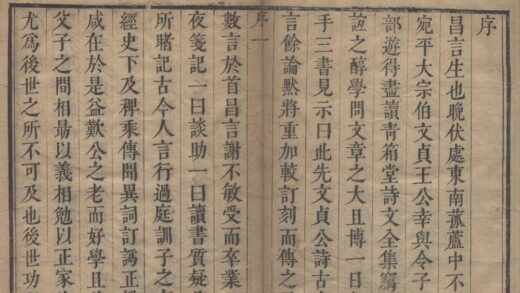 序
昌言生也晚伏處東南菰蘆中不
宛平大宗伯文貞王公幸與令子
部遊得盡讀青箱堂詩文全集竊
誼之醇學問文章之大且博一日
手三書見示曰此先文貞公詩古
言餘論黙將重加較訂刻而傳之
序一
數言於首昌言謝不敏受而卒業
夜箋記一曰談助一曰讀書質疑
所睹記古今人言行過庭訓子之
經史下及稗乘傳聞異詞訂譌正
咸在於是益歎公之老而好學且
父子之間相勗以義相勉以正家
尤爲後世之所不可及也後世功